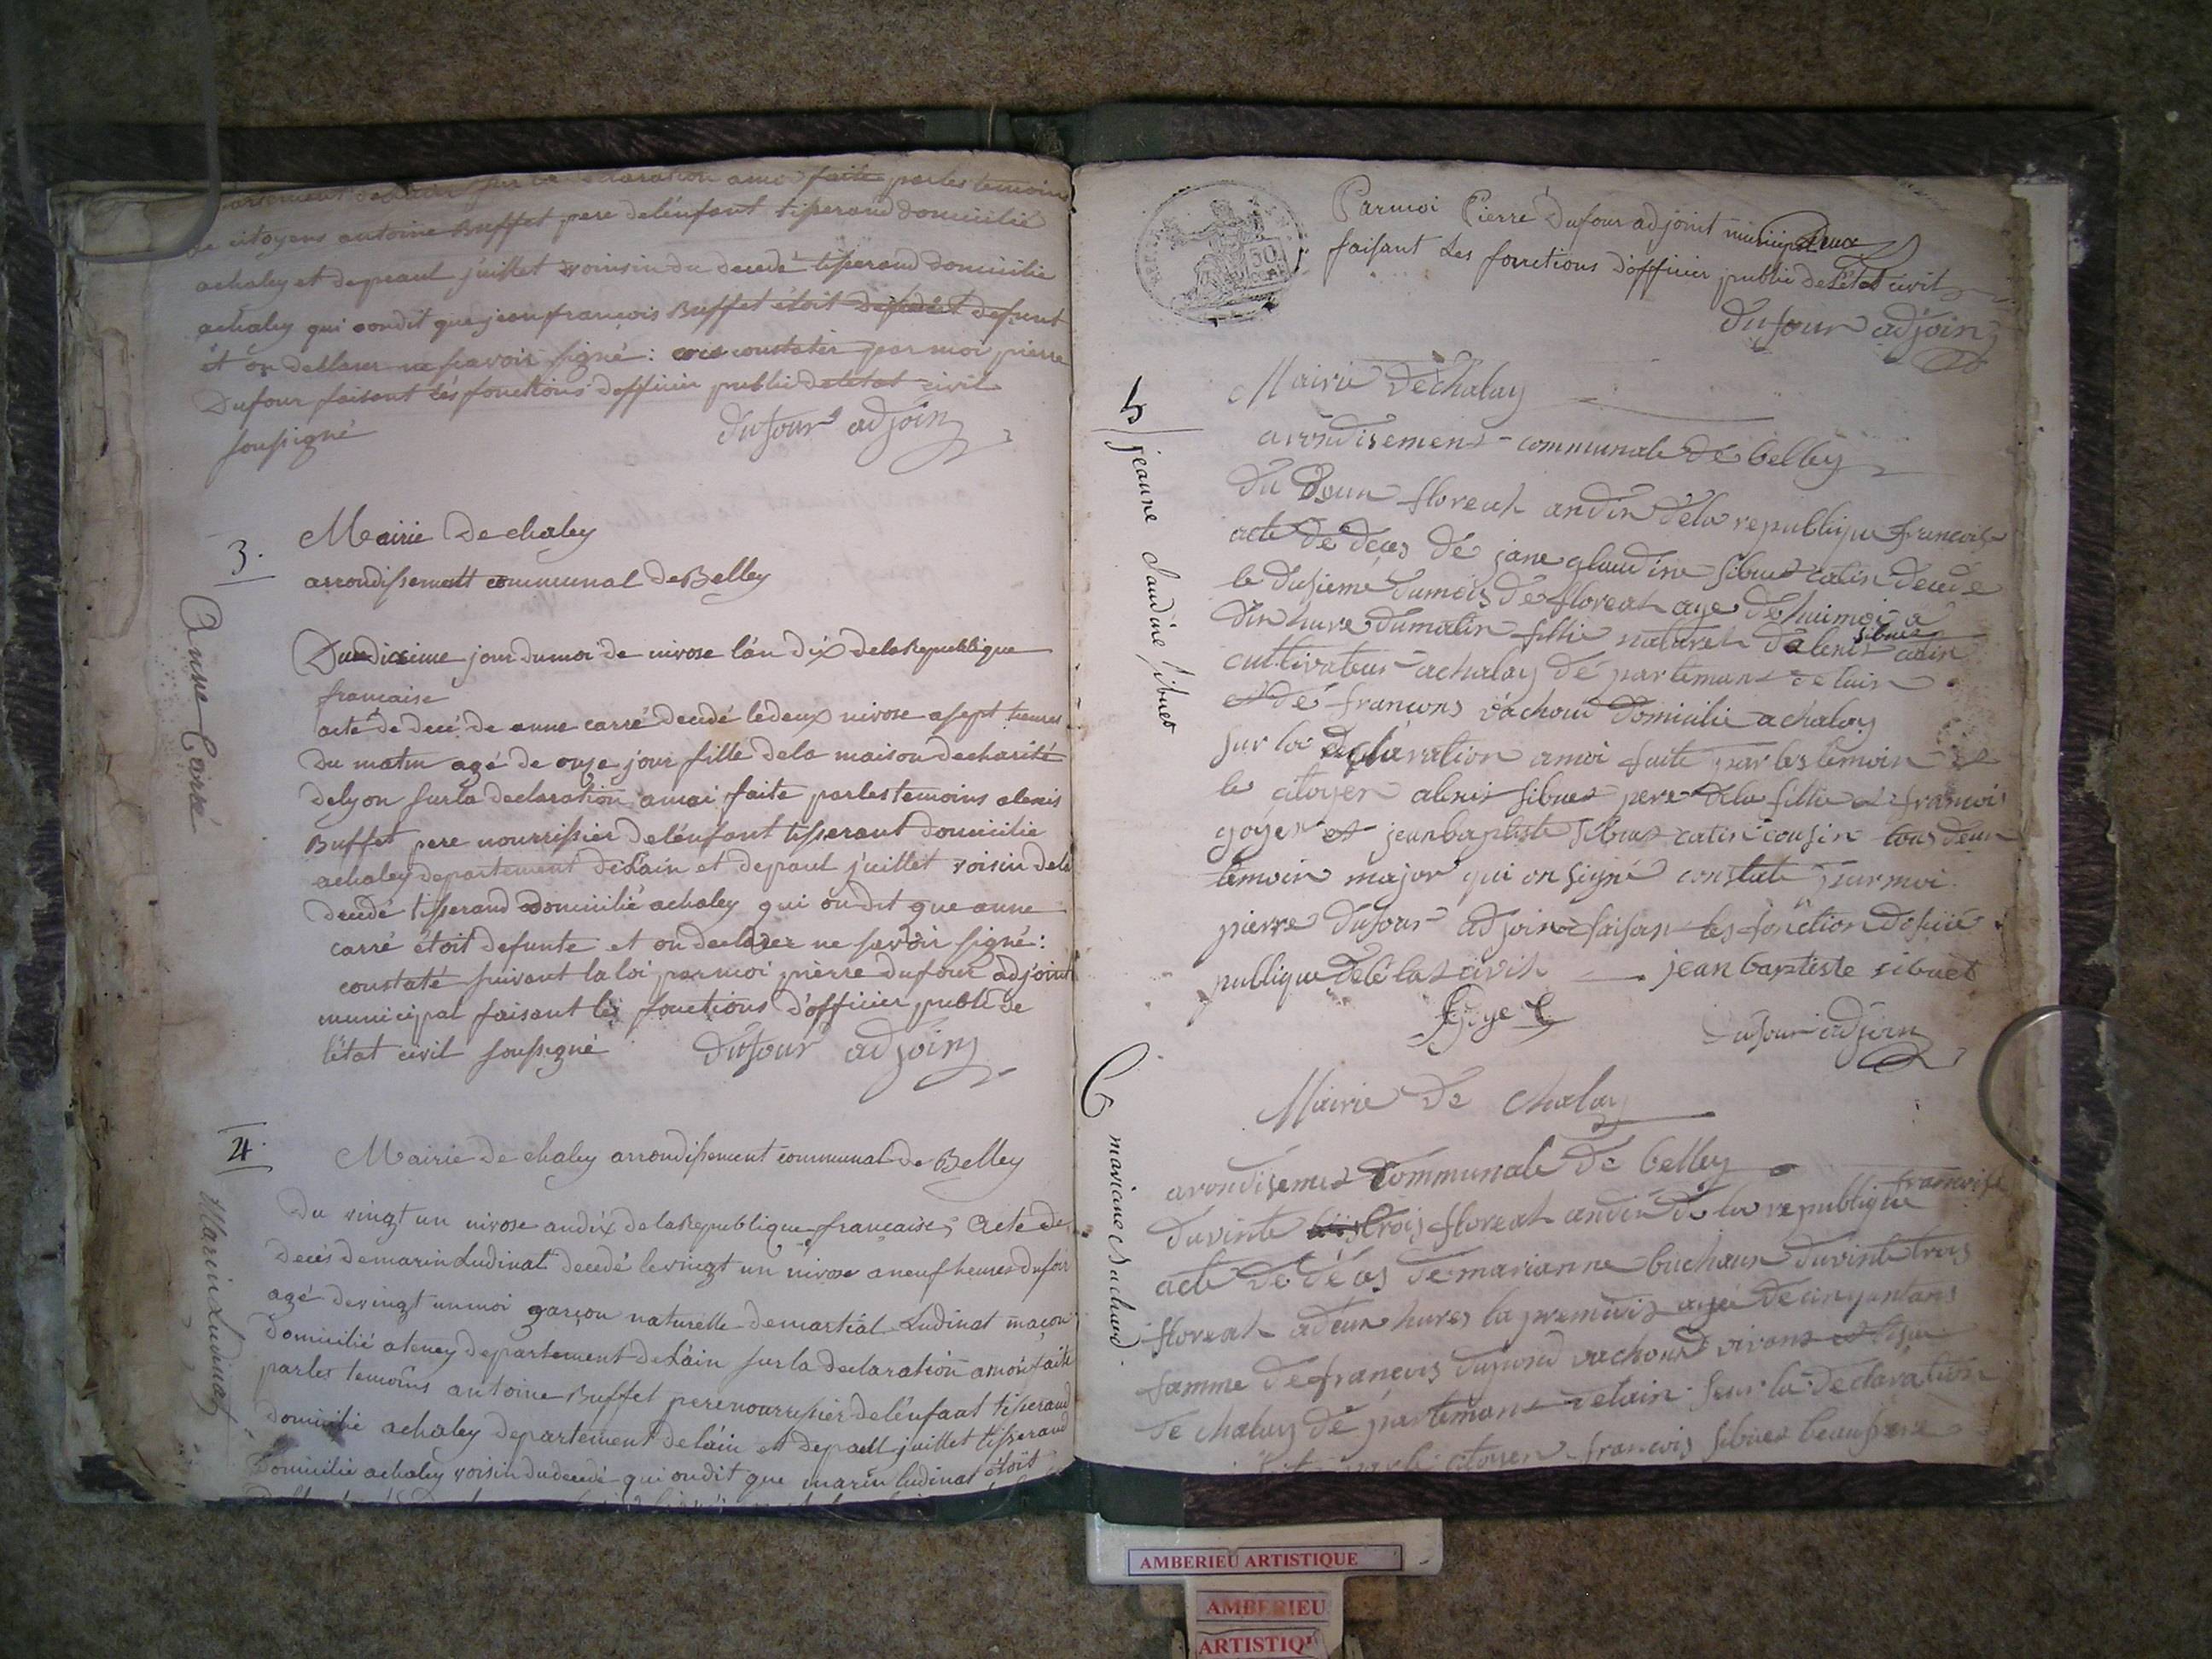 declaration a moi faite par les temoins
citoyens antoine Buffet pere de lénfant tisserand domicilié
a chaley et de paul juillet voinsin du decedé tisserand domicilié
a chaley qui ondit que jean francois Buffet étoit defunt
et on declarer ne scavoir signé: constater par moi pierre
Dufour faisant les fonctions dofficier public deletat civil
soussigné
dufour adjoin
3.
Anne Carré
Mairie De chaley
arrondissement communal de Belley
Du dixieme jour du moi de nivose l'an dix de la Republique
francaise
acte de decé de anne carré decedé le deux nivose a sept heures
du matin agé de onze jour fille de la maison de charité
de lyon sur la declaration a moi faite par les temoins alexis
Buffet pere nourrissier de lénfant tisserant domicilié
a chaley departement de Lain et de paul juillet voisin de la
decedé tisserand domicilié a chaley qui on dit que anne
carré étoit defunte et on declarer ne savoir signé:
constaté suivant la loi par moi pierre dufour adjoint
municipal faisant les fonctions d'officier public de
l'état civil soussigné
dufour adjoin
4.
Marin Ludinat
Mairie de chaley arrondissement communal de Belley
Du vingt un nivose an dix de la Republique francaise, Acte de
decès de marin Ludinat decedé le vingt un nivose a neuf heures du soir
agé de vingt un moi garçon naturelle de martial Ludinat maçon
domicilié a teney departement de Lain sur la declaration a moi faite
par les temoins antoine Buffet pere nourrissier de lénfant tisserand
domicilié a chaley departement de láin et de paul juillet tisserand
Domicilié a chaley voisin du decedé qui on dit que marin ludinat étoit
Par moi Pierre Dufour adjoint municipal
faisant Les fonctions d'officier public de Létat civil
dufour adjoin
5/ jeanne claudine sibuet
Mairie de chalay
arondisement communale de belley
du floreal an dix de la republique francoise
acte de deces de jane glaudine sibuet catin decede
le dusieme du mois de floreal age de huimoi a
dix hure du matin fillie naturel dalexis sibuet catin
cultivateur a chalay dé partemant de lain
et de francons vachoud domicilie a chalay
sur la declaration a moi faite par les temoin
le citoyen alexis sibuet pere de la fillie et francois
goyet et jean baptiste sibuet catin cousin tous deux
temoin major qui on signé constate par moi
pierre dufour adjoin faisan les fonction dofficie
publique de létat civil jean baptiste sibuet
Goyet
dufour adjoin
6 mariane Buchard.
Mairie de chalay
arondisemet communale de belley
du vinte trois floreal an dix de la republique francoise
acte de déces de marianne buchaux du vinte trois
floreal a deux hures la premidis agée de cinquantans
famme de francois dupond vachoud vivant
de chalay dé partemant de lain sur la declaration
par le citoyen francois sibuet beaufrere
AMBERIEU ARTISTIQUE
AMBERIEU
ARTISTIQU